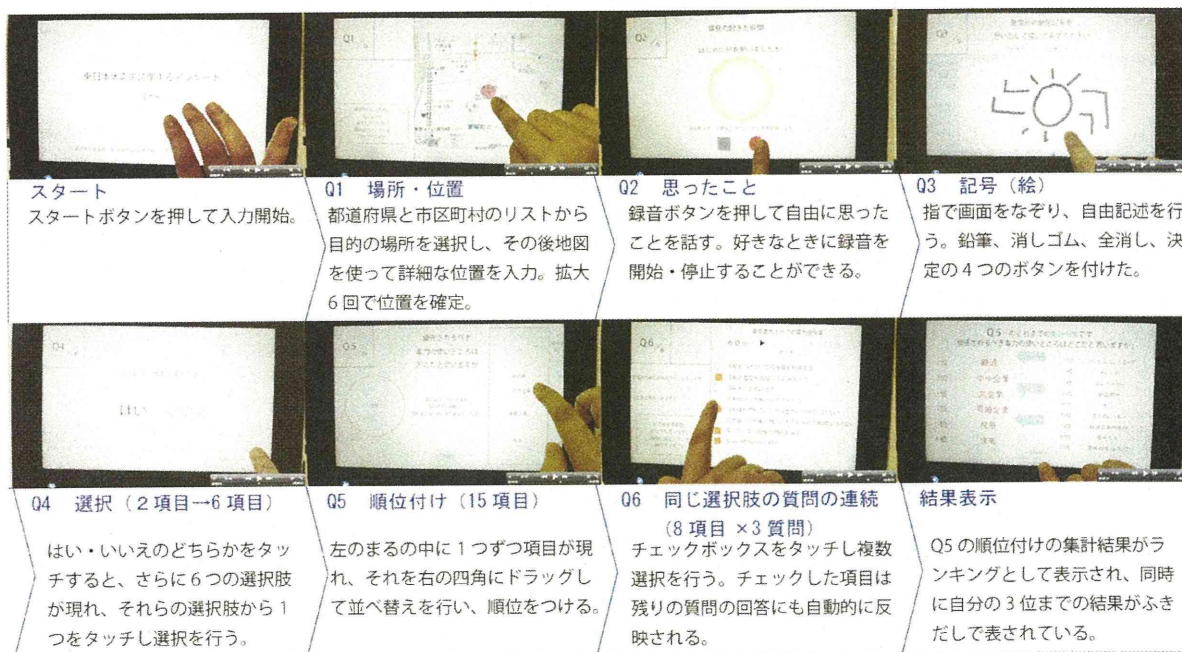 Q1
Q2
Q3
スタート
スタートボタンを押して入力開始。
Q1 場所・位置
都道府県と市区町村のリストから
目的の場所を選択し、その後地図
を使って詳細な位置を入力。拡大
6回で位置を確定。
Q2 思ったこと
録音ボタンを押して自由に思った
ことを話す。好きなときに録音を
開始・停止することができる。
Q3 記号（絵）
指で画面をなぞり、自由記述を行
う。鉛筆、消しゴム、全消し、決
定の４つのボタンを付けた。
Q4
はい
Q5
Q6
Q4 選択（２項目→6項目）
はい・いいえのどちらかをタッ
チすると、さらに６つの選択肢
が現れ、それらの選択肢から１
つをタッチし選択を行う。
Q5 順位付け（15項目）
左のまるの中に１つずつ項目が現
れ、それを右の四角にドラッグし
て並べ替えを行い、順位をつける。
Q6 同じ選択肢の質問の連続
（8項目 ×3質問）
チェックボックスをタッチし複数
選択を行う。チェックした項目は
残りの質問の回答にも自動的に反
映される。
結果表示
Q5の順位付けの集計結果がラ
ンキングとして表示され、同時
に自分の３位までの結果がふき
だしで表されている。